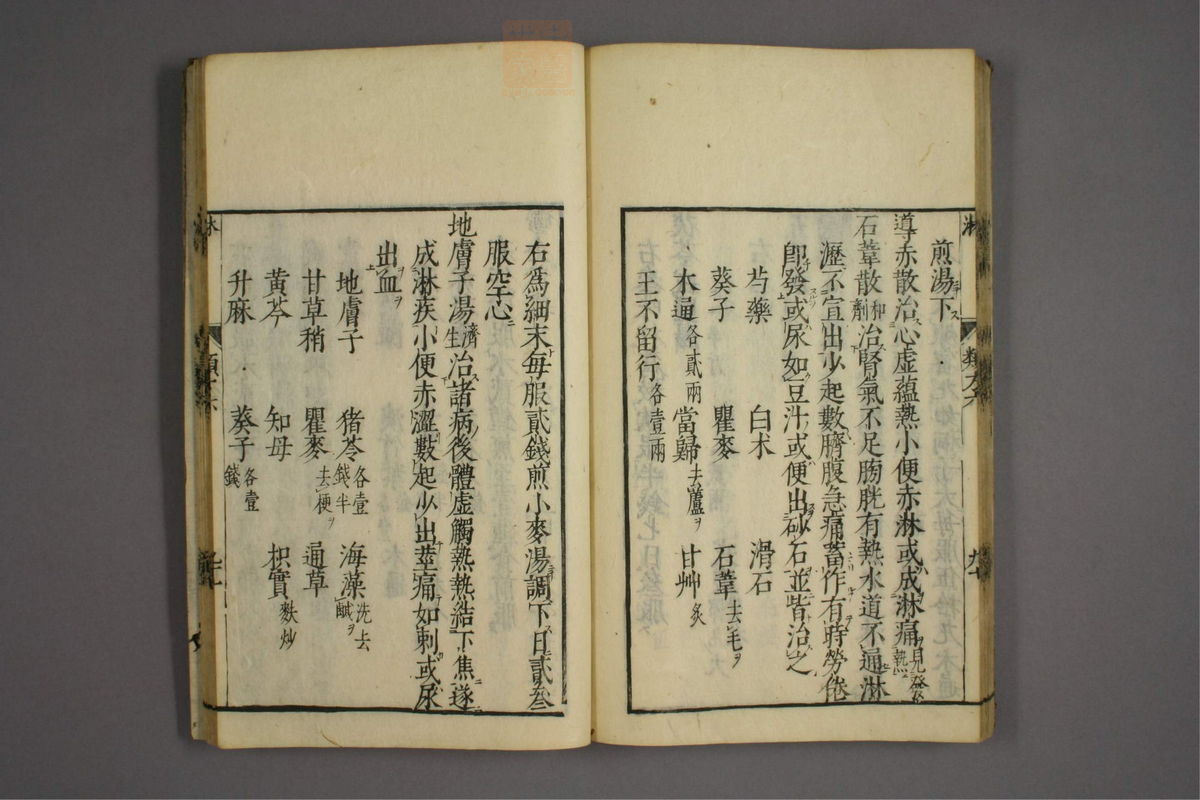 煎湯下
導赤散治心虛蘊熱小便赤淋或成淋痛見發熱
石葦散和劑治腎氣不足膀胱有熱水道不通淋
瀝不宣出少起數臍腹急痛蓄作有時勞倦
卽發或尿如豆汁或便出砂石並皆治之
芍藥 白朮 滑石
葵子 瞿麥 石葦去毛ヲ
木通各貳兩 當歸去蘆ヲ 甘艸炙
王不留行各壹兩
右爲細末每服貳錢煎小麥湯調下日貳叁
服空心
地膚子湯濟生治諸病後體虛觸熱熱結下焦遂
成淋疾小便赤澀數起少出莖痛如刺或尿
出血ヲ
地膚子 猪苓各壹錢半 海藻洗去鹹ヲ
甘草稍 瞿麥去梗ヲ 通草
黃芩 知母 枳實麩炒
升麻 葵子各壹錢